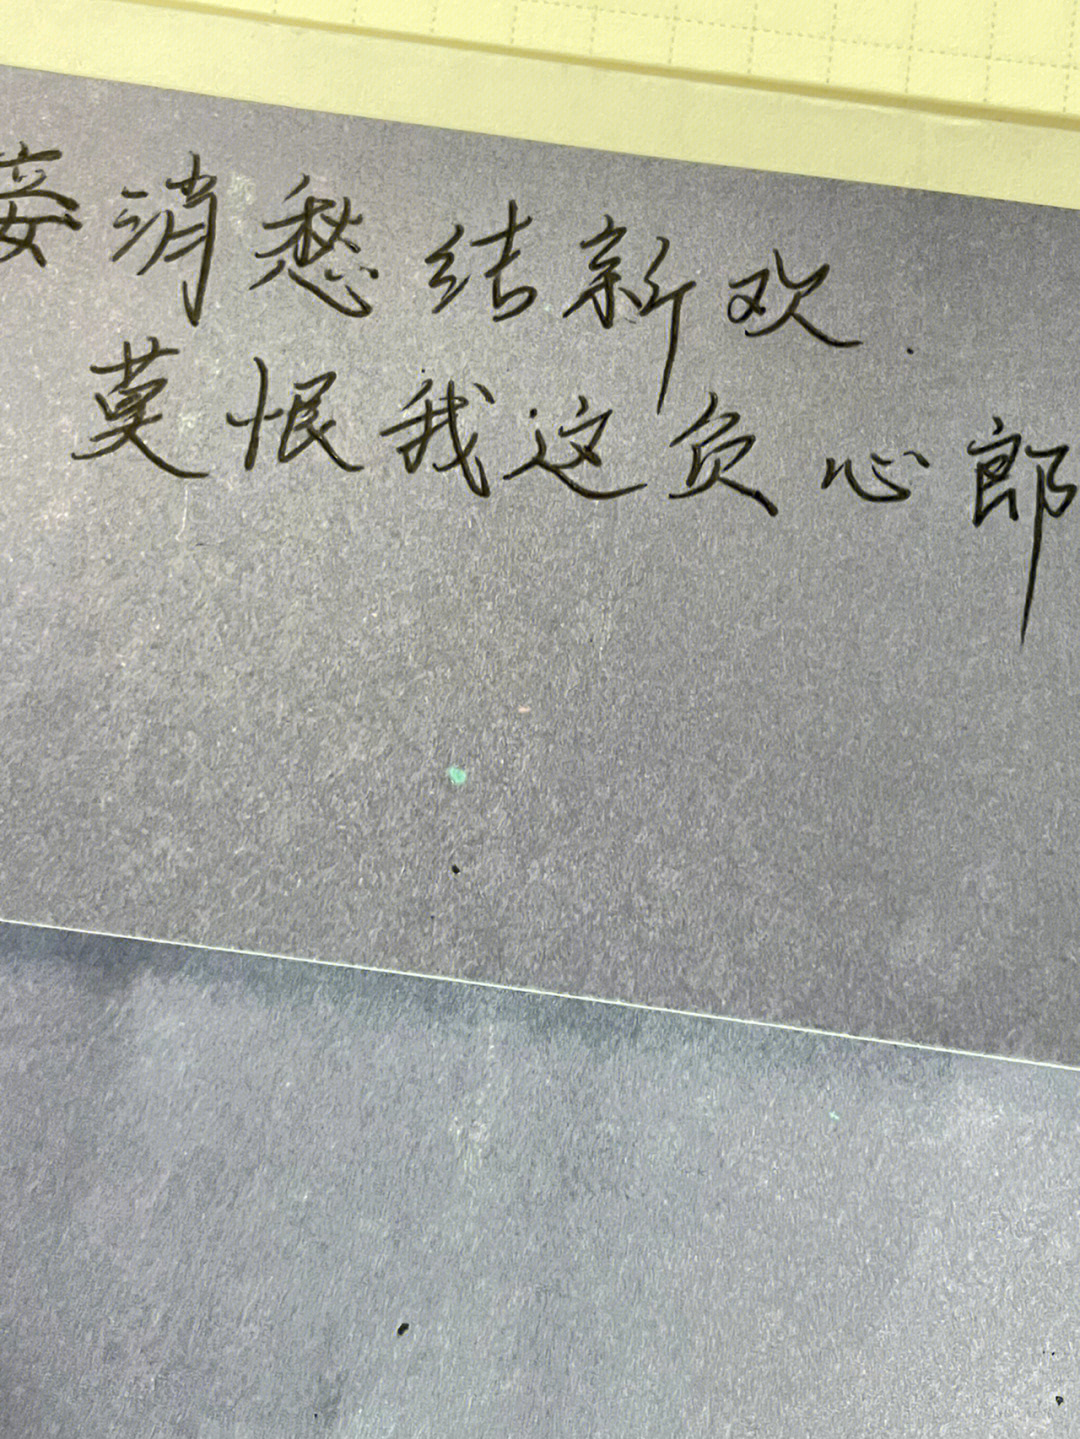 妾消愁结新欢.
莫恨我这负心郎